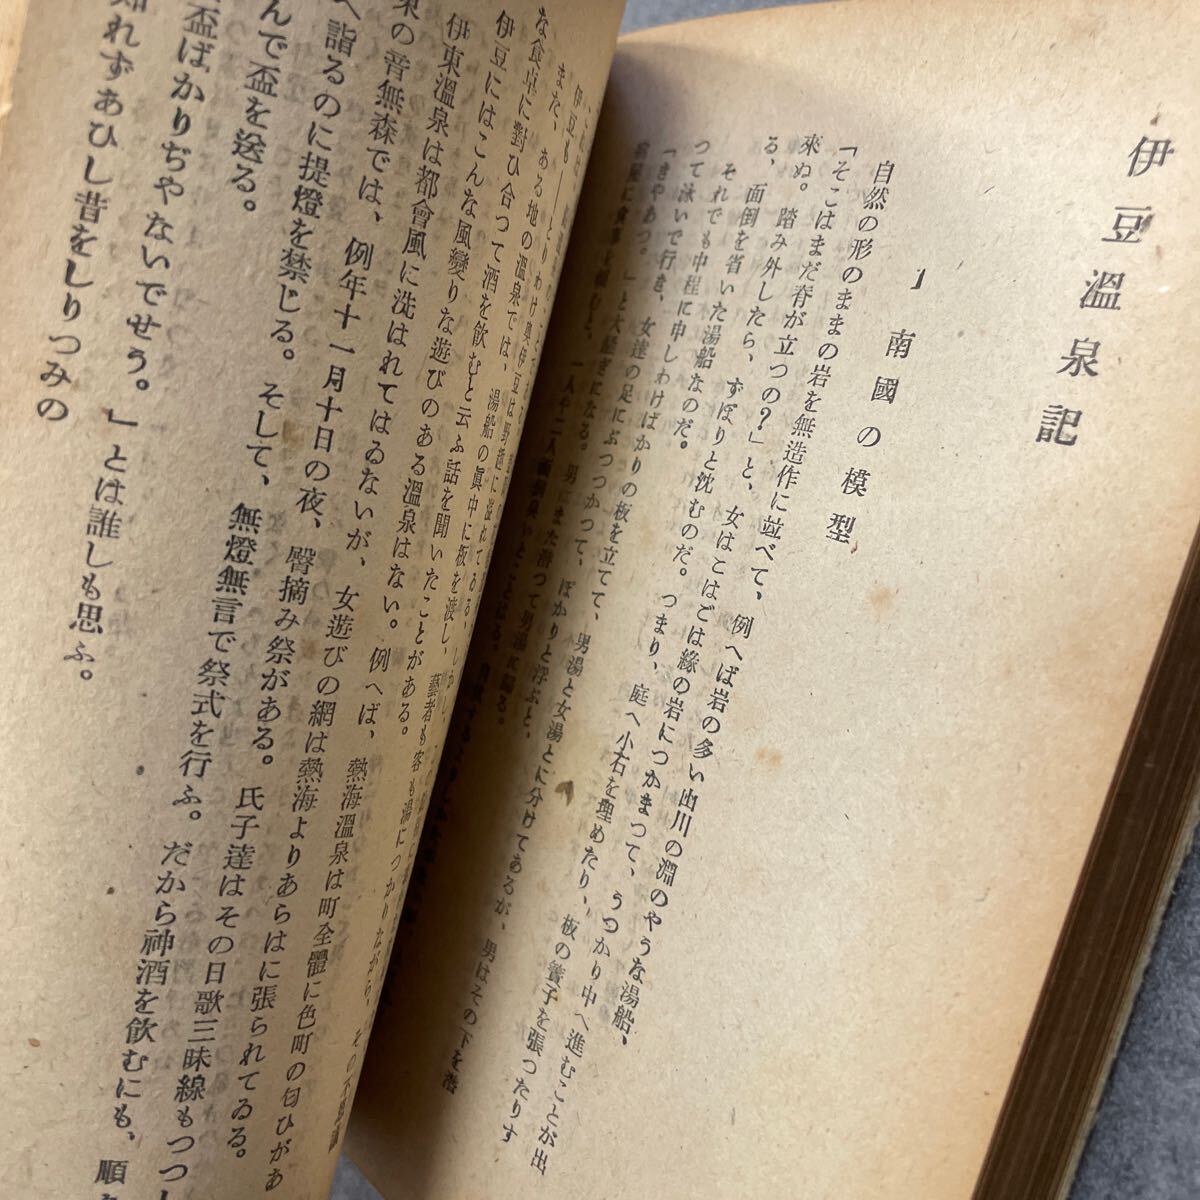 伊豆溫泉記
1 南國の模型
自然の形のままの岩を無造作に竝べて、例へば岩の多い山川の淵のやうな湯船、
「そこはまだ脊が立つの?」と、女はこはごは緣の岩につかまつて、うつかり中へ進むことが出
來ぬ。踏み外したら、ずぼりと沈むのだ。つまり、庭へ小石を埋めたり、板の簀子を張つたりす
る、面倒を省いた湯船なのだ。
それでも中程に申しわけばかりの板を立てて、男湯と女湯とに分けてあるが、男はその下を潛
つて泳いで行き、女達の足にぶつつかつて、ぽかりと浮ぶと、
「きやあつ。」と大騷ぎになる。男はまた潛つて男湯に歸る。
伊豆も――とりわけ奧伊豆は野趣に溢れてゐる、しかし、
また、ある地の溫泉では、湯船の眞中に板を渡し、藝者も客も湯につかりながら、その
な食卓に對ひ合つて酒を飮むと云ふ話を聞いたことがある。
伊豆にはこんな風變りな遊びのある溫泉はない。例へば、熱海溫泉は町全體に色町の匂ひがあ
伊東溫泉は都會風に洗はれてはゐないが、女遊びの網は熱海よりあらはに張られてゐる。
東の音無森では、例年十一月十日の夜、臀摘み祭がある。氏子達はその日歌三昧線もつつし
へ詣るのに提燈を禁じる。そして、無燈無言で祭式を行ふ。だから神酒を飮むにも、順
んで盃を送る。
盃ばかりぢやないでせう。」とは誰しも思ふ。
知れずあひし昔をしりつみの